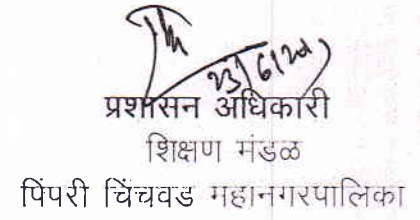 23/6/20
प्रशासन अधिकारी
शिक्षण मंडळ
पिंपरी चिंचवड महानगरपालिका